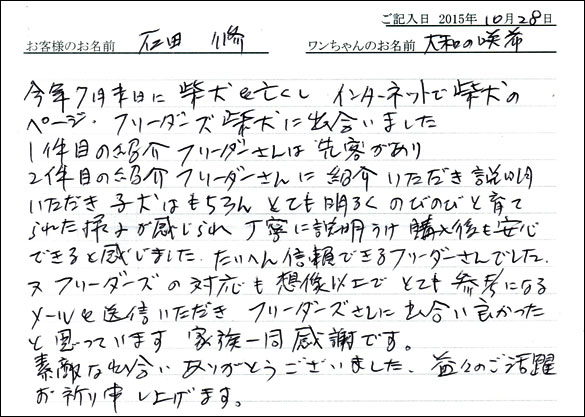 ご記入日 2015年 10月 28日
お客様のお名前 石田 修 ワンちゃんのお名前 大和の咲希
今年7月末日に 柴犬を亡くし インターネットで柴犬の
ページ・ブリーダーズ柴犬に出会いました
1件目の紹介 ブリーダーさんは 先客があり
2件目の紹介 ブリーダーさんに 紹介 いただき 説明
いただき 子犬はもちろん とても明るく のびのびと育て
られた様子が感じられ 丁寧に説明うけ 購入後も安心
できると感じました。たいへん信頼できるブリーダーさんでした。
又 ブリーダーズの対応も 想像以上で とても 参考になる
メールを送信いただき ブリーダーズさんに 出会い 良かった
と思っています 家族一同感謝です。
素敵な出会い ありがとうございました。益々のご活躍
お祈り申し上げます。